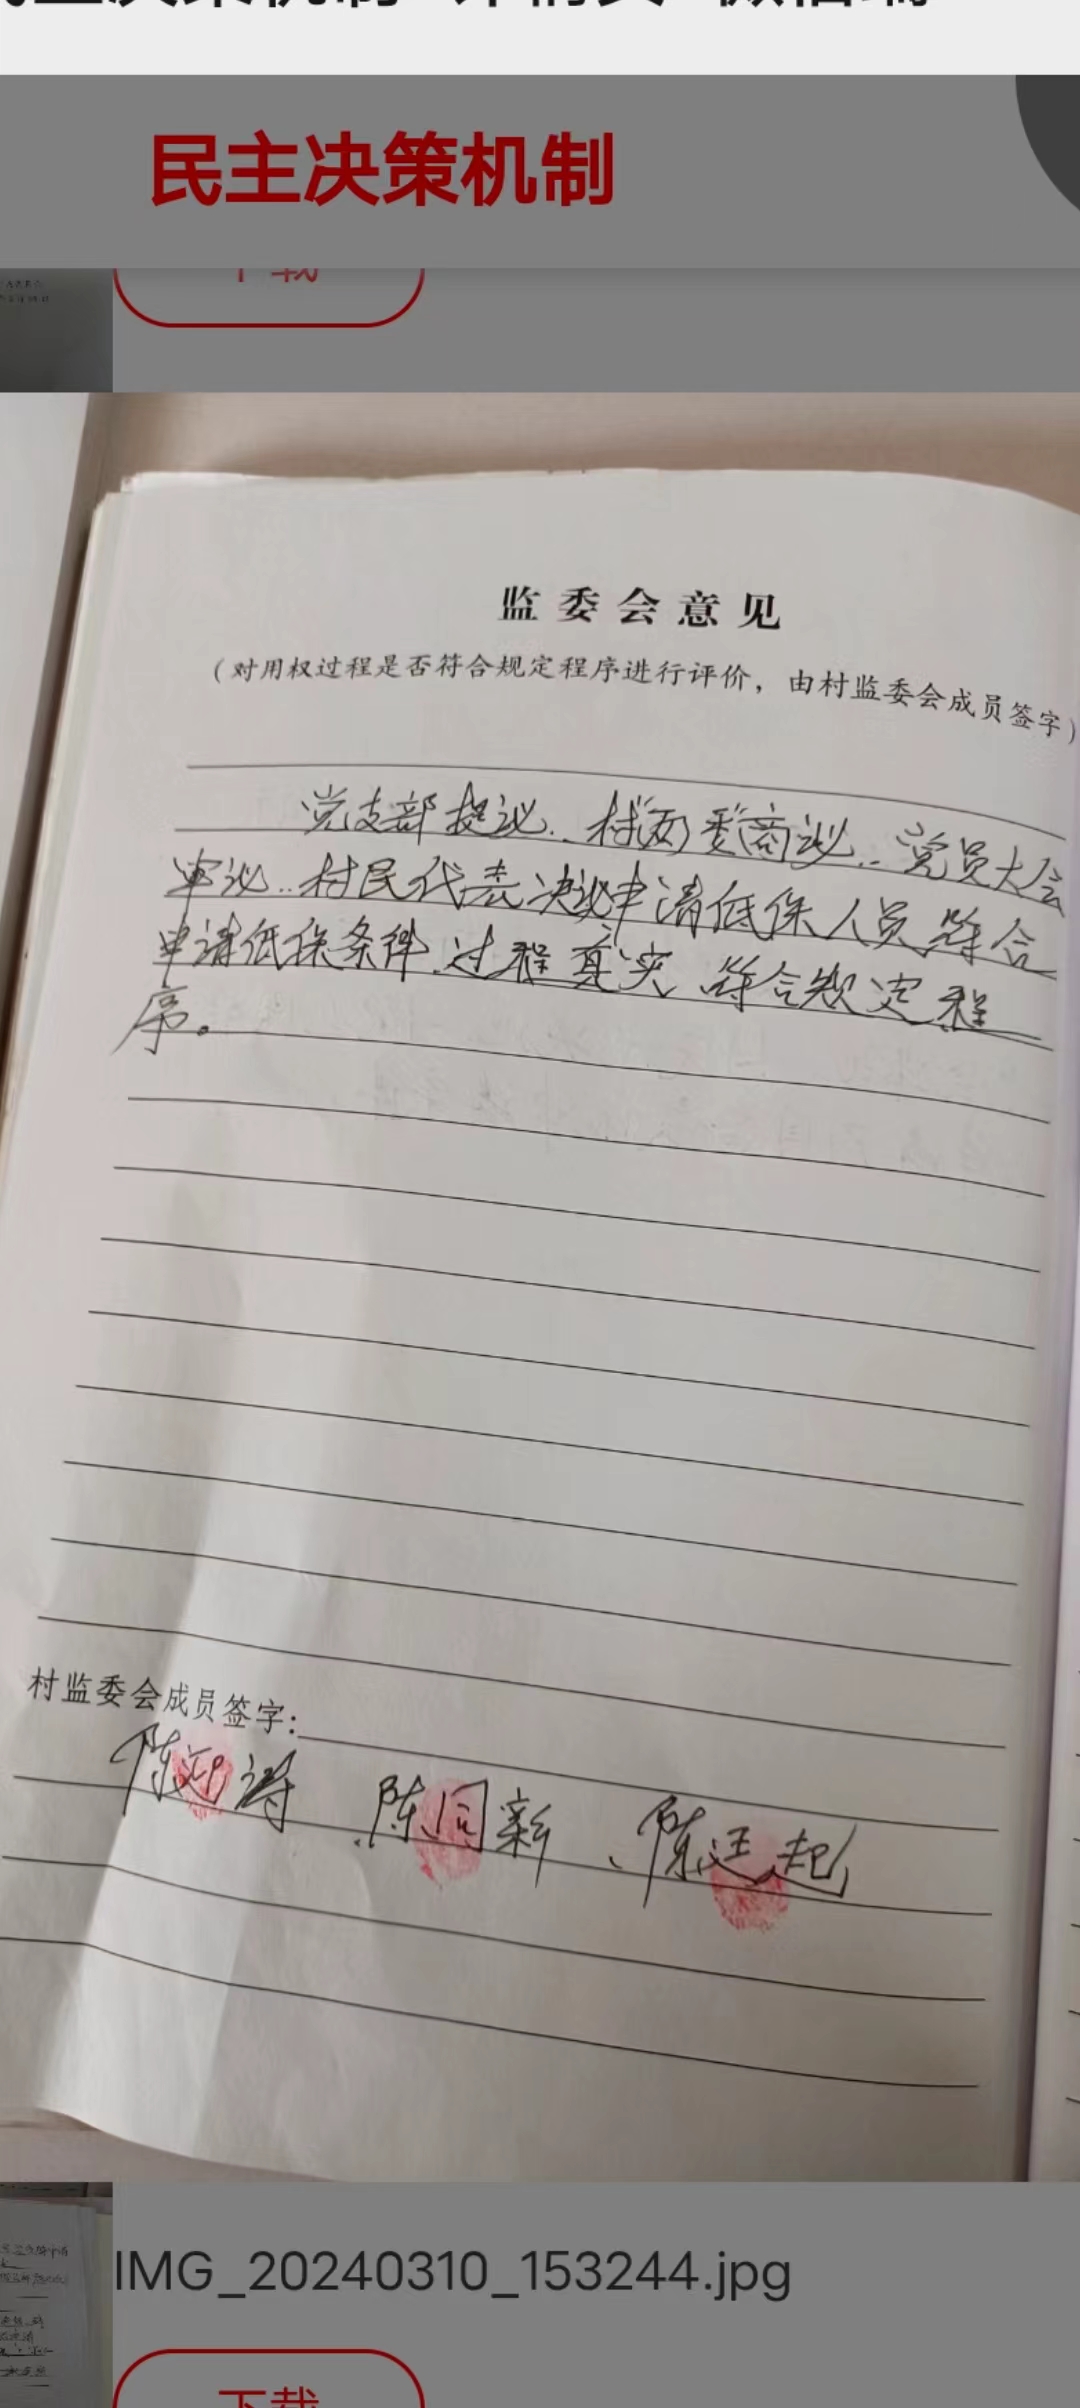 民主决策机制
下载
监委会意见
(对用权过程是否符合规定程序进行评价，由村监委会成员签字)
党支部提议、村两委商议、党员大会
审议、村民代表决议申请低保人员符合
申请低保条件.过程真实 符合规定程
序。
村监委会成员签字:
陈迎涛 陈同新 陈廷起
IMG_20240310_153244.jpg
下载